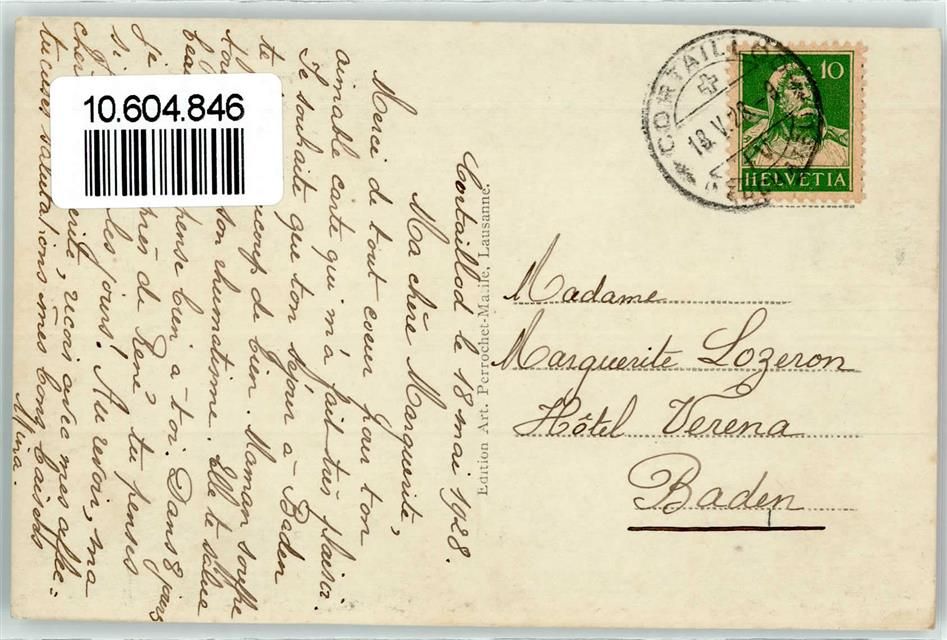 10.604.846
CORTAILLOD
18.V.28.-9
(NEUCHATEL)
10
HELVETIA
Cortaillod le 18 mai 1928.
Ma chère Marguerite,
Merci de tout coeur pour ton
aimable carte qui m'a fait très plaisir.
Je souhaite que ton séjour à Baden
te beaucoup de bien. Maman souffre
son rhumatisme. Elle te salue
pense bien à toi. Dans 8 jours
je près de René, tu penses
si les jours! Au revoir, ma
chère reçois avec mes affec=
tueuses salutations mes bons baisers
Mina.
Edition Art. Perrochet-Matile, Lausanne.
Madame
Marguerite Lozeron
Hôtel Verena
Baden